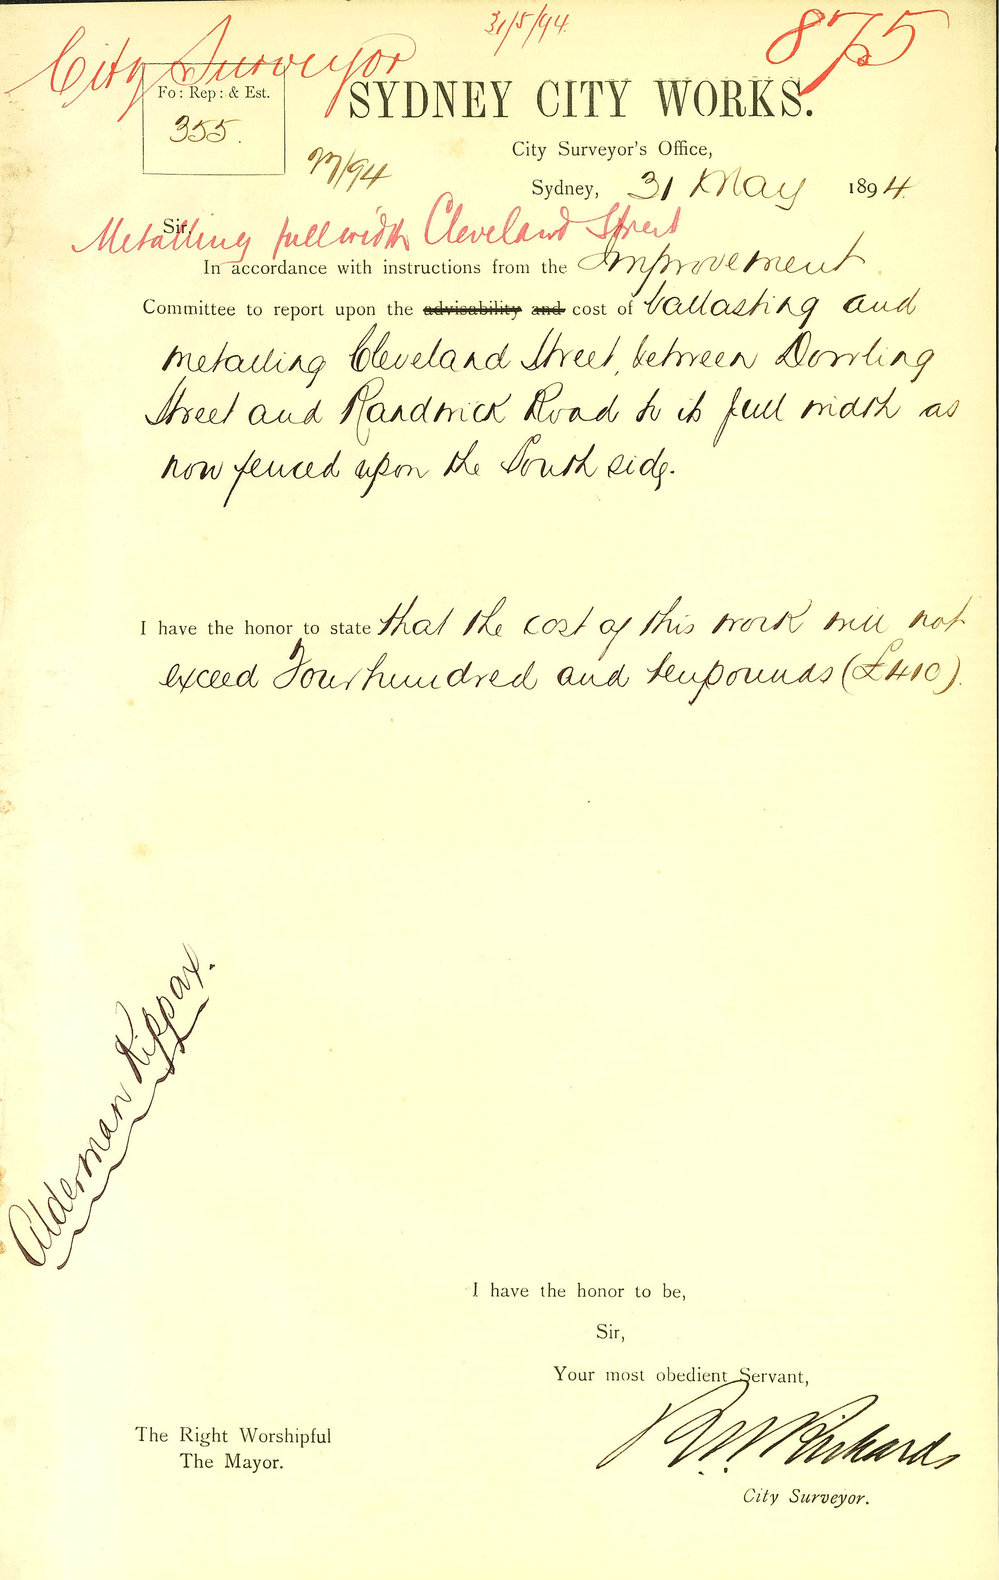 31/5/94.
875
City Surveyor
Fo: Rep: & Est.
355.
SYDNEY CITY WORKS.
City Surveyor's Office,
Sydney, 31 May 1894.
Sir,
Metalling full width Cleveland Street
In accordance with instructions from the Improvement
Committee to report upon the advisability and cost of ballasting and
metalling Cleveland Street, between Dowling
Street and Randwick Road to its full width as
now fenced upon the South side.
I have the honor to state that the cost of this work will not
exceed Four hundred and ten pounds (£410).
Alderman Rippax.
I have the honor to be,
Sir,
Your most obedient Servant,
R.W. Richards
City Surveyor.
The Right Worshipful
The Mayor.